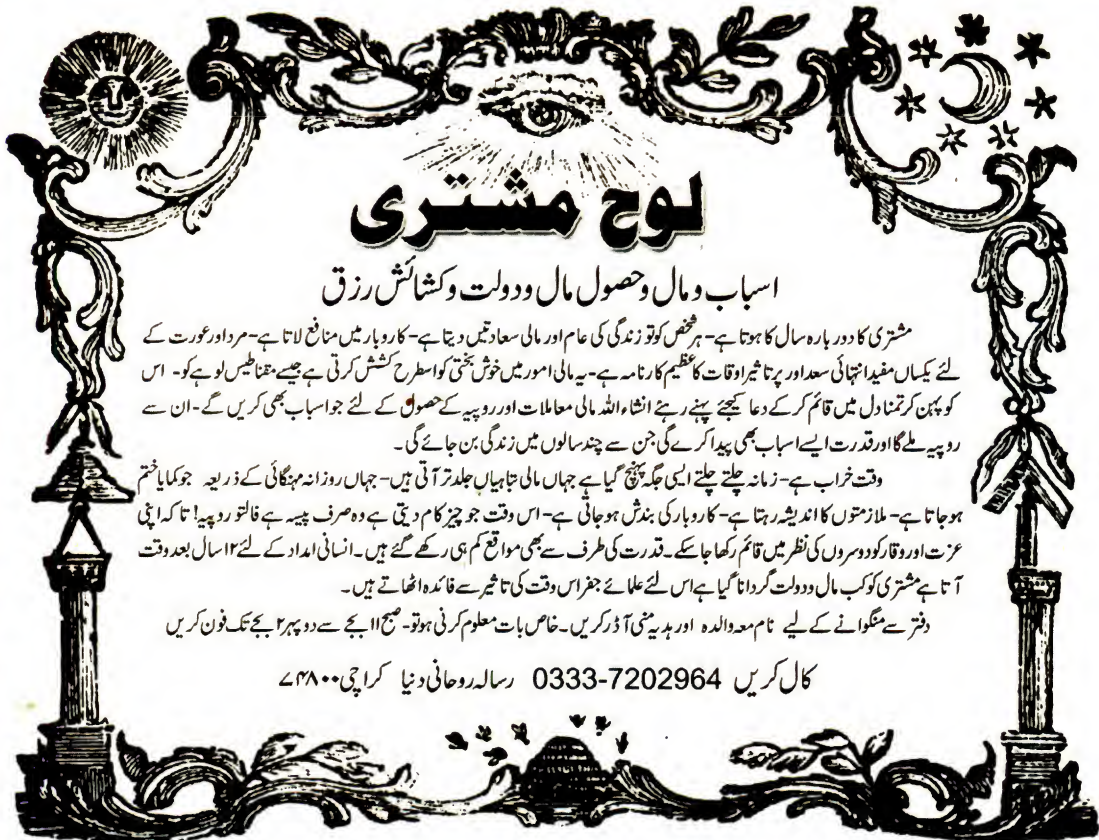 لوح مشتری
اسباب و مال و حصول مال و دولت و کشائش رزق
مشتری کا دور بارہ سال کا ہوتا ہے- ہر شخص کو تو زندگی کی عام اور مالی سعادتیں دیتا ہے- کاروبار میں منافع لاتا ہے- مرد اور عورت کے
لئے یکساں مفید انتہائی سعد اور پر تاثیر اوقات کا عظیم کارنامہ ہے- یہ مالی امور میں خوش بختی کو اسطرح کشش کرتی ہے جیسے مقناطیس لوہے کو- اس
کو پہن کر تمنا دل میں قائم کر کے دعا کیجئے پہنے رہئے انشاءاللہ مالی معاملات اور روپیہ کے حصول کے لئے جو اسباب بھی کریں گے- ان سے
روپیہ ملے گا اور قدرت ایسے اسباب بھی پیدا کرے گی جن سے چند سالوں میں زندگی بن جائے گی۔
وقت خراب ہے- زمانہ چلتے چلتے ایسی جگہ پہنچ گیا ہے جہاں مالی تباہیاں جلد تر آتی ہیں- جہاں روزانہ مہنگائی کے ذریعہ جو کمایا ختم
ہو جاتا ہے- ملازمتوں کا اندیشہ رہتا ہے- کاروبار کی بندش ہو جاتی ہے- اس وقت جو چیز کام دیتی ہے وہ صرف پیسہ ہے فالتو روپیہ! تا کہ اپنی
عزت اور وقار کو دوسروں کی نظر میں قائم رکھا جا سکے۔ قدرت کی طرف سے بھی مواقع کم ہی رکھے گئے ہیں۔ انسانی امداد کے لئے ۱۲ سال بعد وقت
آتا ہے مشتری کو کب مال و دولت گردانا گیا ہے اس لئے علمائے جفر اس وقت کی تاثیر سے فائدہ اٹھاتے ہیں۔
دفتر سے منگوانے کے لیے نام معہ والدہ اور ہدیہ منی آڈر کریں۔ خاص بات معلوم کرنی ہو تو- صبح ۱۱ بجے سے دوپہر ۲ بجے تک فون کریں
کال کریں 0333-7202964 رسالہ روحانی دنیا کراچی ۷۴۸۰۰